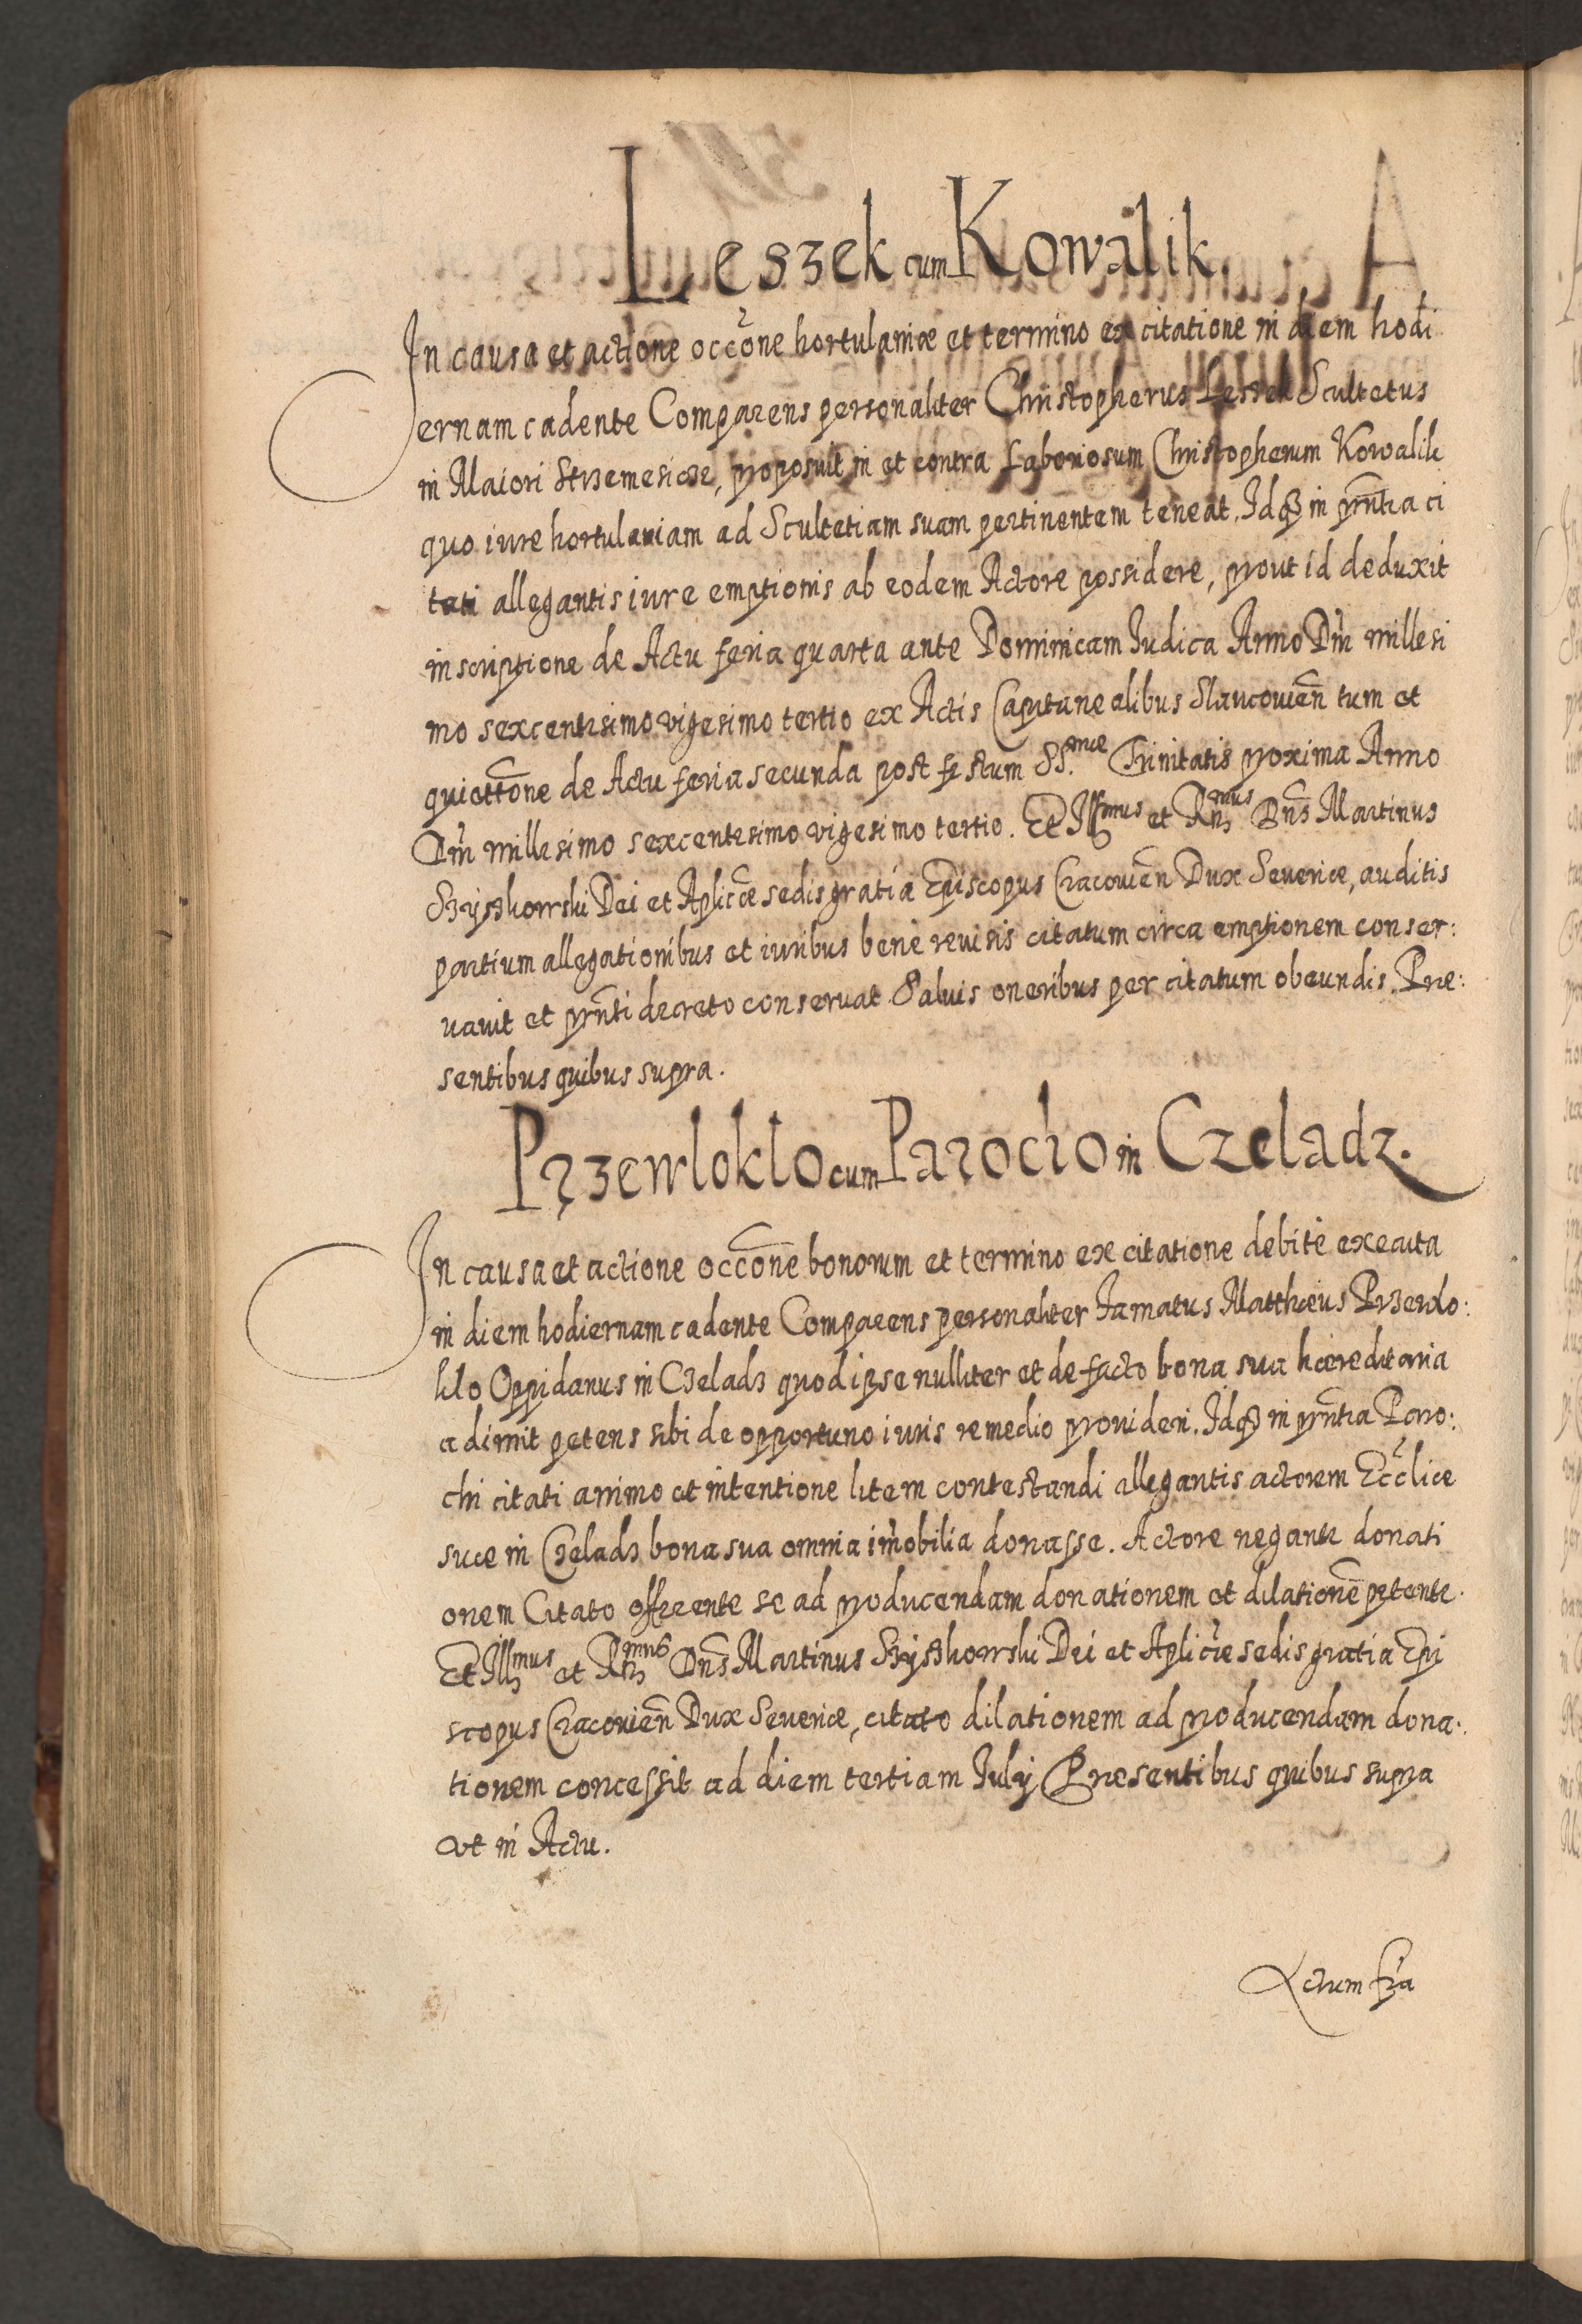 Leszek cum Kowalik.
In causa et actione occõne hortulaniæ et termino ex citatione in diem hodi
ernam cadente Comparens personaliter Christopherus Leszek Scultetus
in Maiori Strzemesicze, proposuit in et contra Laboriosum Christopherum Kowalik
quo iure hortulaniam ad Scultetiam suam pertinentem teneat. Idq3 in prñtia ci
tati allegantis iure emptionis ab eodem Actore possidere, prout id deduxit
inscriptione de Actu feria quarta ante Dominicam Iudica Anno Dñi millesi
mo sexcentesimo vigesimo tertio ex Actis Capitanealibus Slaucovieñ tum et
quiettõne de Actu feria secunda post festum SS.mæ Trinitatis proxima Anno
Dñi millesimo sexcentesimo vigesimo tertio. Et Illmus et Rmus Dñs Martinus
Szyszkowski Dei et Aplicæ sedis gratia Episcopus Cracovieñ Dux Severiæ, auditis
partium allegationibus et iuribus bene revisis citatum circa emptionem conser:
vavit et prñti decreto conservat Salvis oneribus per citatum obeundis. Præ:
sentibus quibus supra.
Przewloklo cum Parocho in Czeladz.
In causa et actione occõne bonorum et termino ex citatione debitè executa
in diem hodiernam cadente Comparens personaliter Famatus Matthæus Przewlo:
klo Oppidanus in Czeladz quod ipse nulliter et de facto bona sua hæreditaria
adimit petens sibi de opportuno iuris remedio provideri. Idq3 in prñtia Paro:
chi citati animo et intentione litem contestandi allegantis actorem Ecclæ
suæ in Czeladz bona sua omnia im̃obilia donasse. Actore negante donati
onem Citato offerente se ad producendam donationem et dilationẽ petente.
Et Illmus et Rmus Dñs Martinus Szyszkowski Dei et Aplicæ sedis gratia Epi
scopus Cracovieñ Dux Severiæ, citato dilationem ad producendam dona:
tionem concessit ad diem tertiam Iulij Præsentibus quibus supra
vt in Actu.
Actum fria